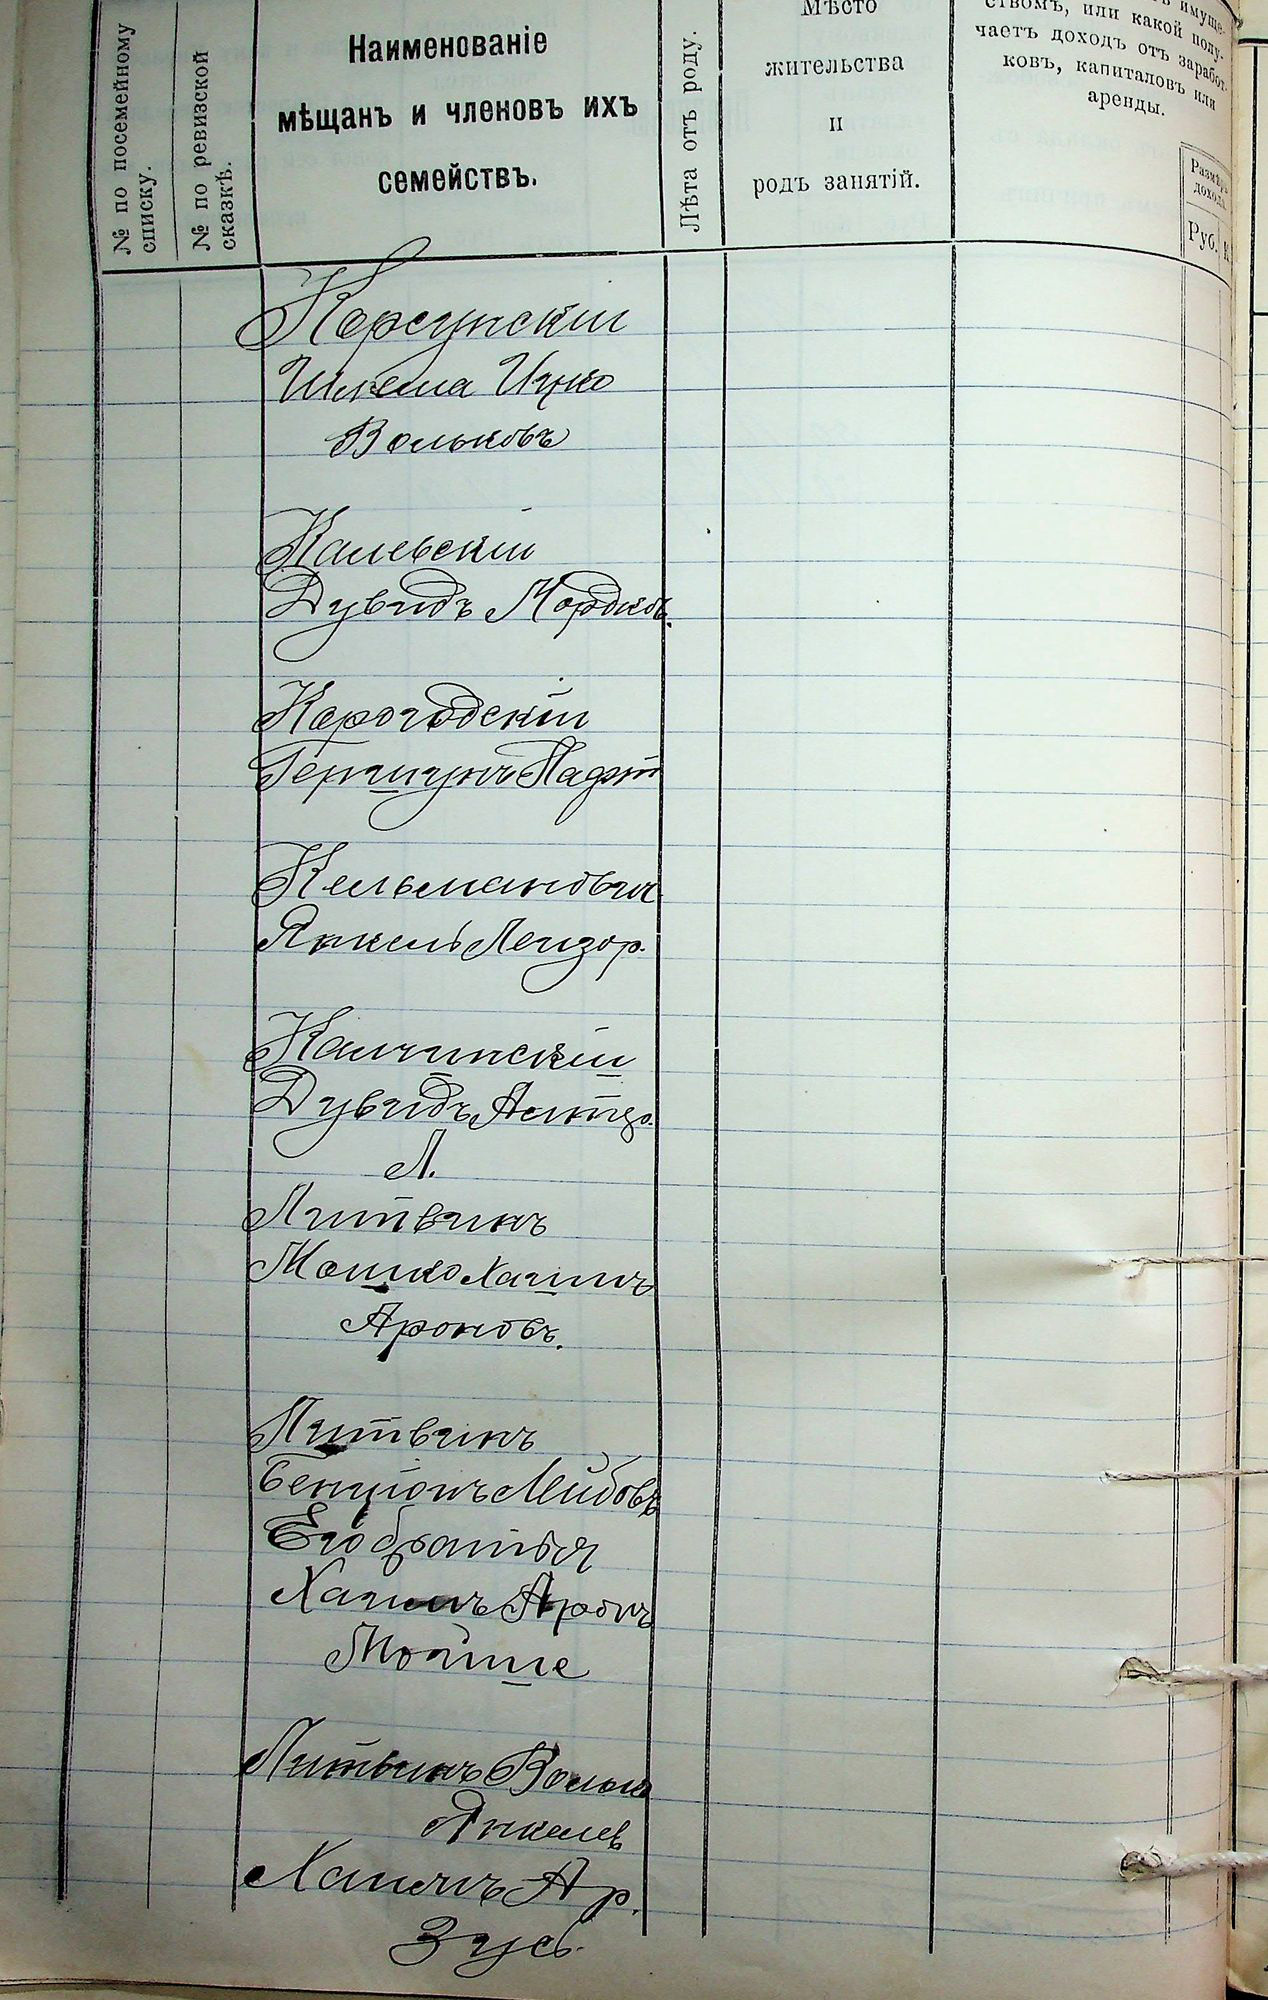 № по посемейному
списку.
№ по ревизской
сказкѣ.
Наименованіе
мѣщанъ и членовъ ихъ
семействъ.
Лѣта отъ роду.
Мѣсто
жительства
и
родъ занятій.
имуще-
ствомъ, или какой полу-
чаетъ доходъ отъ заработ-
ковъ, капиталовъ или
аренды.
Размѣръ
дохода.
Руб. К
Корсунскій
Шлема Ицко
Вольковъ
Калевскій
Дувидъ Мордков.
Корогодскій
Гершунъ Нафт
Кельмановичъ
Янкель Лейзор.
Калчинскій
Дувидъ
Л.
Литвинъ
Мошко Хаимъ
Ароновъ.
Литвинъ
Бенціонъ Лейбовъ
Его братья
Хаимъ Аронъ
Мойше
Литвинъ Вольф
Янкелев
Хаимъ Ар.
Зусь.